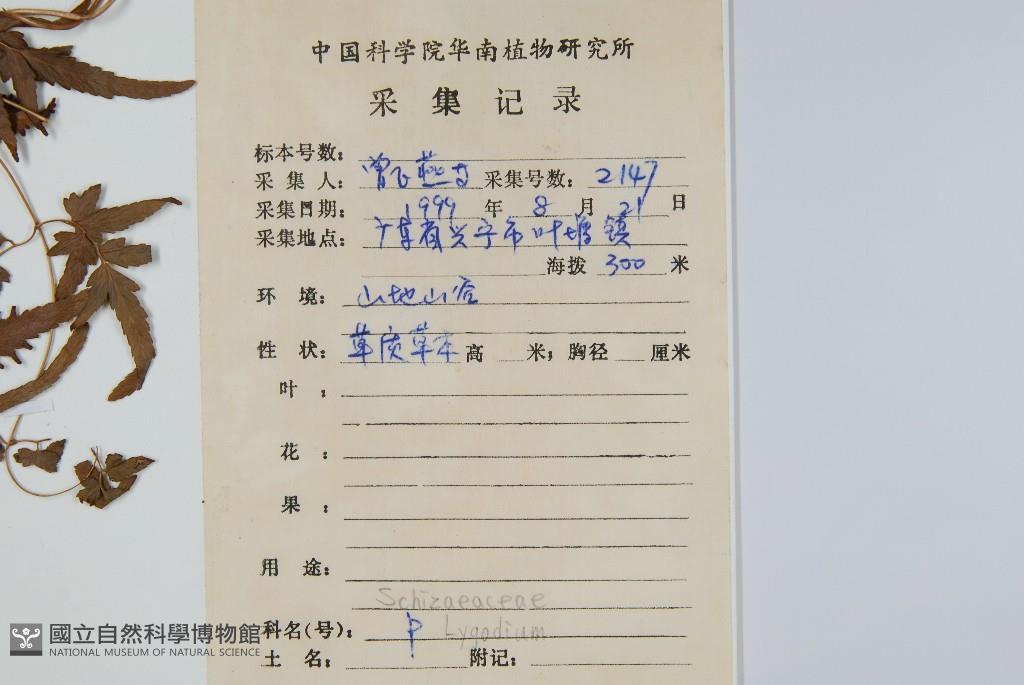 中国科学院华南植物研究所
采集记录
标本号数:
采集人: 曾飞燕 采集号数: 2147
采集日期: 1999 年 8 月 21 日
采集地点: 广东省兴宁市叶塘镇
海拨 300 米
环境: 山地山谷
性状: 草质草本 高 米; 胸径 厘米
叶:
花:
果:
用途:
Schizaeaceae
科名(号): P Lygodium
土名: 附记:
國立自然科學博物館
NATIONAL MUSEUM OF NATURAL SCIENCE